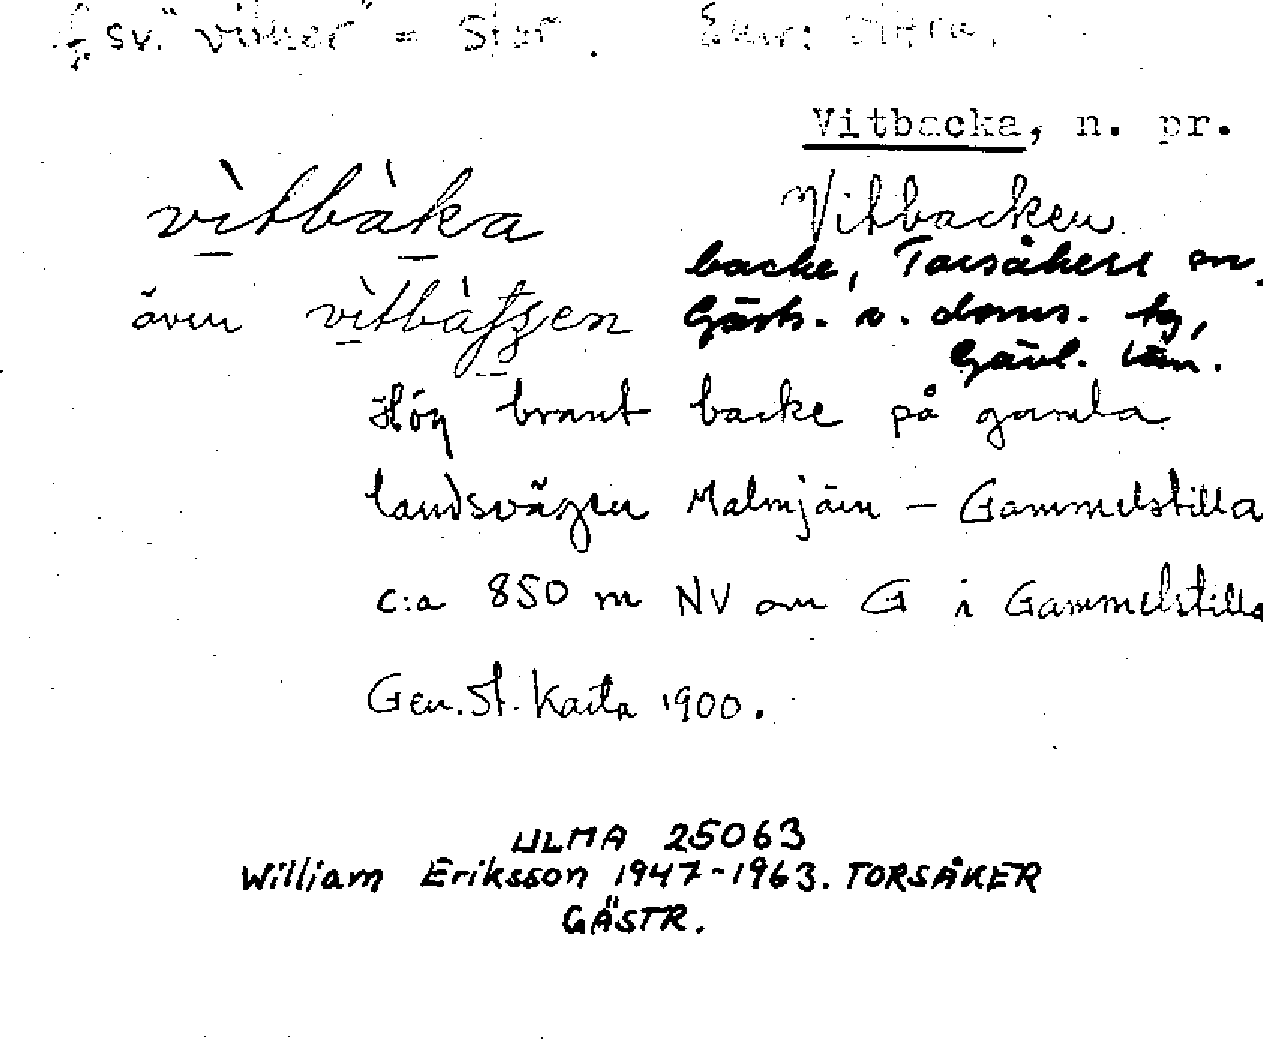 fsv. "vitker" = Stor.
Vitbacka, n. pr.
vìtbàka
Vitbacken
backe, Torsåkers sn.
även vìtbàʃʒen
Gästr. v. doms. tg,
Gävl. län.
Hög brant backe på gamla
landsvägen Malmjärn – Gammelstilla
c:a 850 m NV om G i Gammelstilla
Gen. St. Karta 1900.
ULMA 25063
William Eriksson 1947-1963. TORSÅKER
GÄSTR.